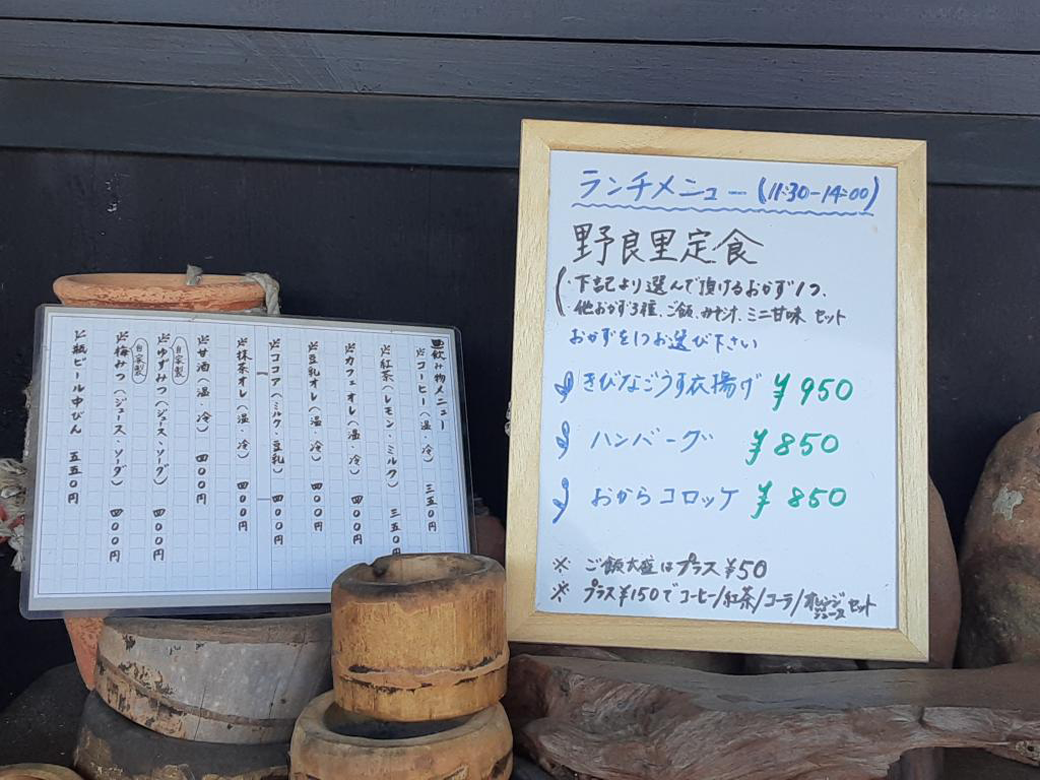 ■飲み物メニュー
※コーヒー(温・冷) 三五〇円
※紅茶(レモン・ミルク) 三五〇円
※カフェオレ(温・冷) 四〇〇円
※豆乳オレ(温・冷) 四〇〇円
※ココア(ミルク・豆乳) 四〇〇円
※抹茶オレ(温・冷) 四〇〇円
※甘酒(温・冷) 四〇〇円
※自家製ゆずみつ(ジュース・ソーダ) 四〇〇円
※自家製梅みつ(ジュース・ソーダ) 四〇〇円
※瓶ビール中びん 五五〇円
ランチメニュー(11:30-14:00)
野良里定食
(・下記より選んで頂けるおかず1つ、
・他おかず3種、ご飯、みそ汁、ミニ甘味 セット
おかずを1つお選び下さい
きびなごうす衣揚げ ¥950
ハンバーグ ¥850
おからコロッケ ¥850
※ ご飯大盛はプラス¥50
※ プラス¥150でコーヒー/紅茶/コーラ/オレンジジュース セット